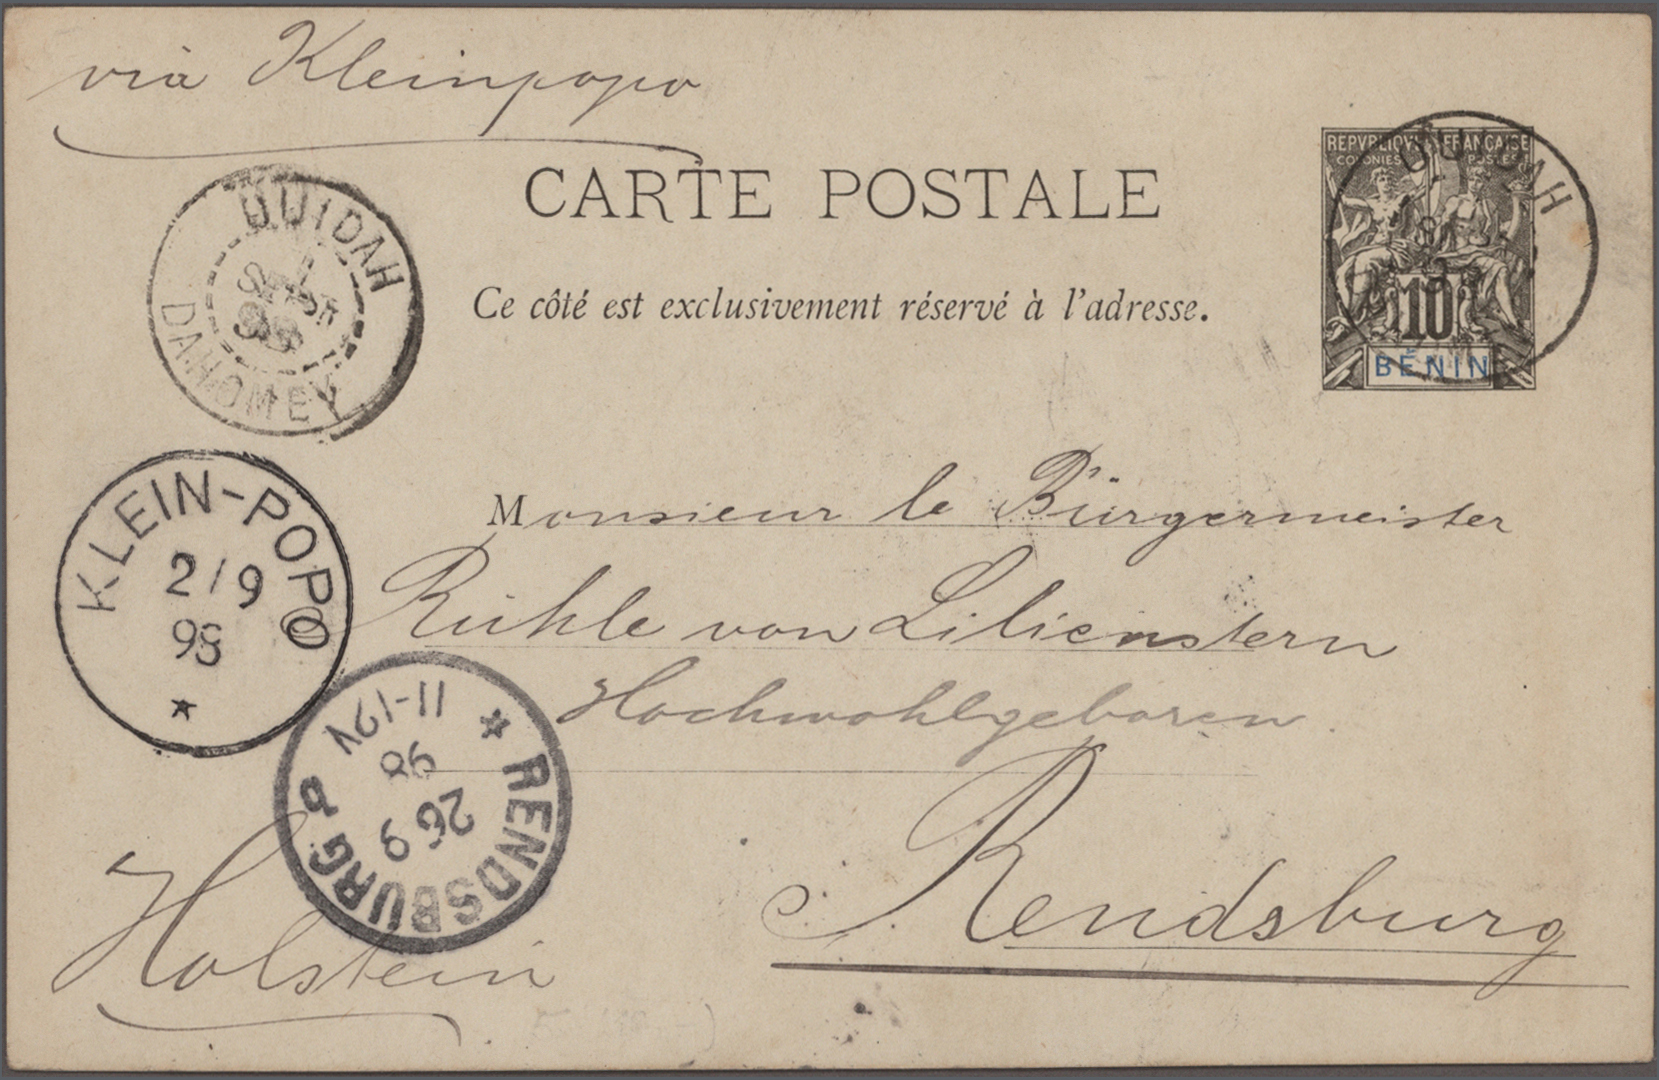 via Kleinpopo
REPVBLIQVE FRANÇAISE
COLONIES POSTES
10
BÉNIN
CARTE POSTALE
Ce côté est exclusivement réservé à l'adresse.
OUIDAH
SEPT
98
DAHOMEY
KLEIN-POPO
2/9
98
Monsieur le Bürgermeister
Rühle von Lilienstern
Hochwohlgeboren
RENDSBURG
26 9
98
11-12N
Rendsburg
Holstein